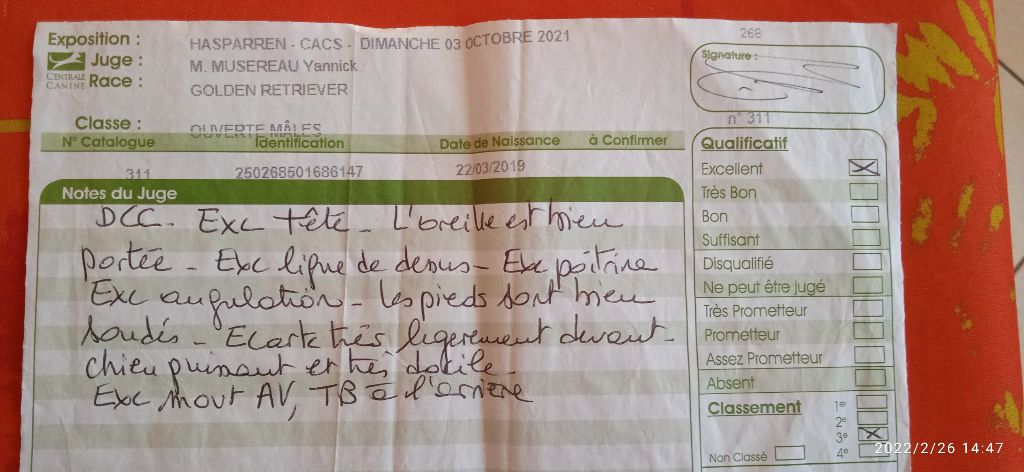 268
Exposition : HASPARREN - CACS - DIMANCHE 03 OCTOBRE 2021
Signature :
Juge : M. MUSEREAU Yannick
CENTRALE CANINE
Race : GOLDEN RETRIEVER
Classe : OUVERTE MÂLES
n° 311
N° Catalogue Identification Date de Naissance à Confirmer
311 250268501686147 22/03/2019
Notes du Juge
DCC - Exc tête - L'oreille est bien
portée - Exc ligne de dessus - Exc poitrine
Exc angulation - les pieds sont bien
soudés - Ecarte très légerement devant -
chien puissant et très docile -
Exc mouvt AV, TB à l'arrière
Qualificatif
Excellent
Très Bon
Bon
Suffisant
Disqualifié
Ne peut être jugé
Très Prometteur
Prometteur
Assez Prometteur
Absent
Classement 1er
2e
3e
Non Classé 4e
2022/2/26 14:47